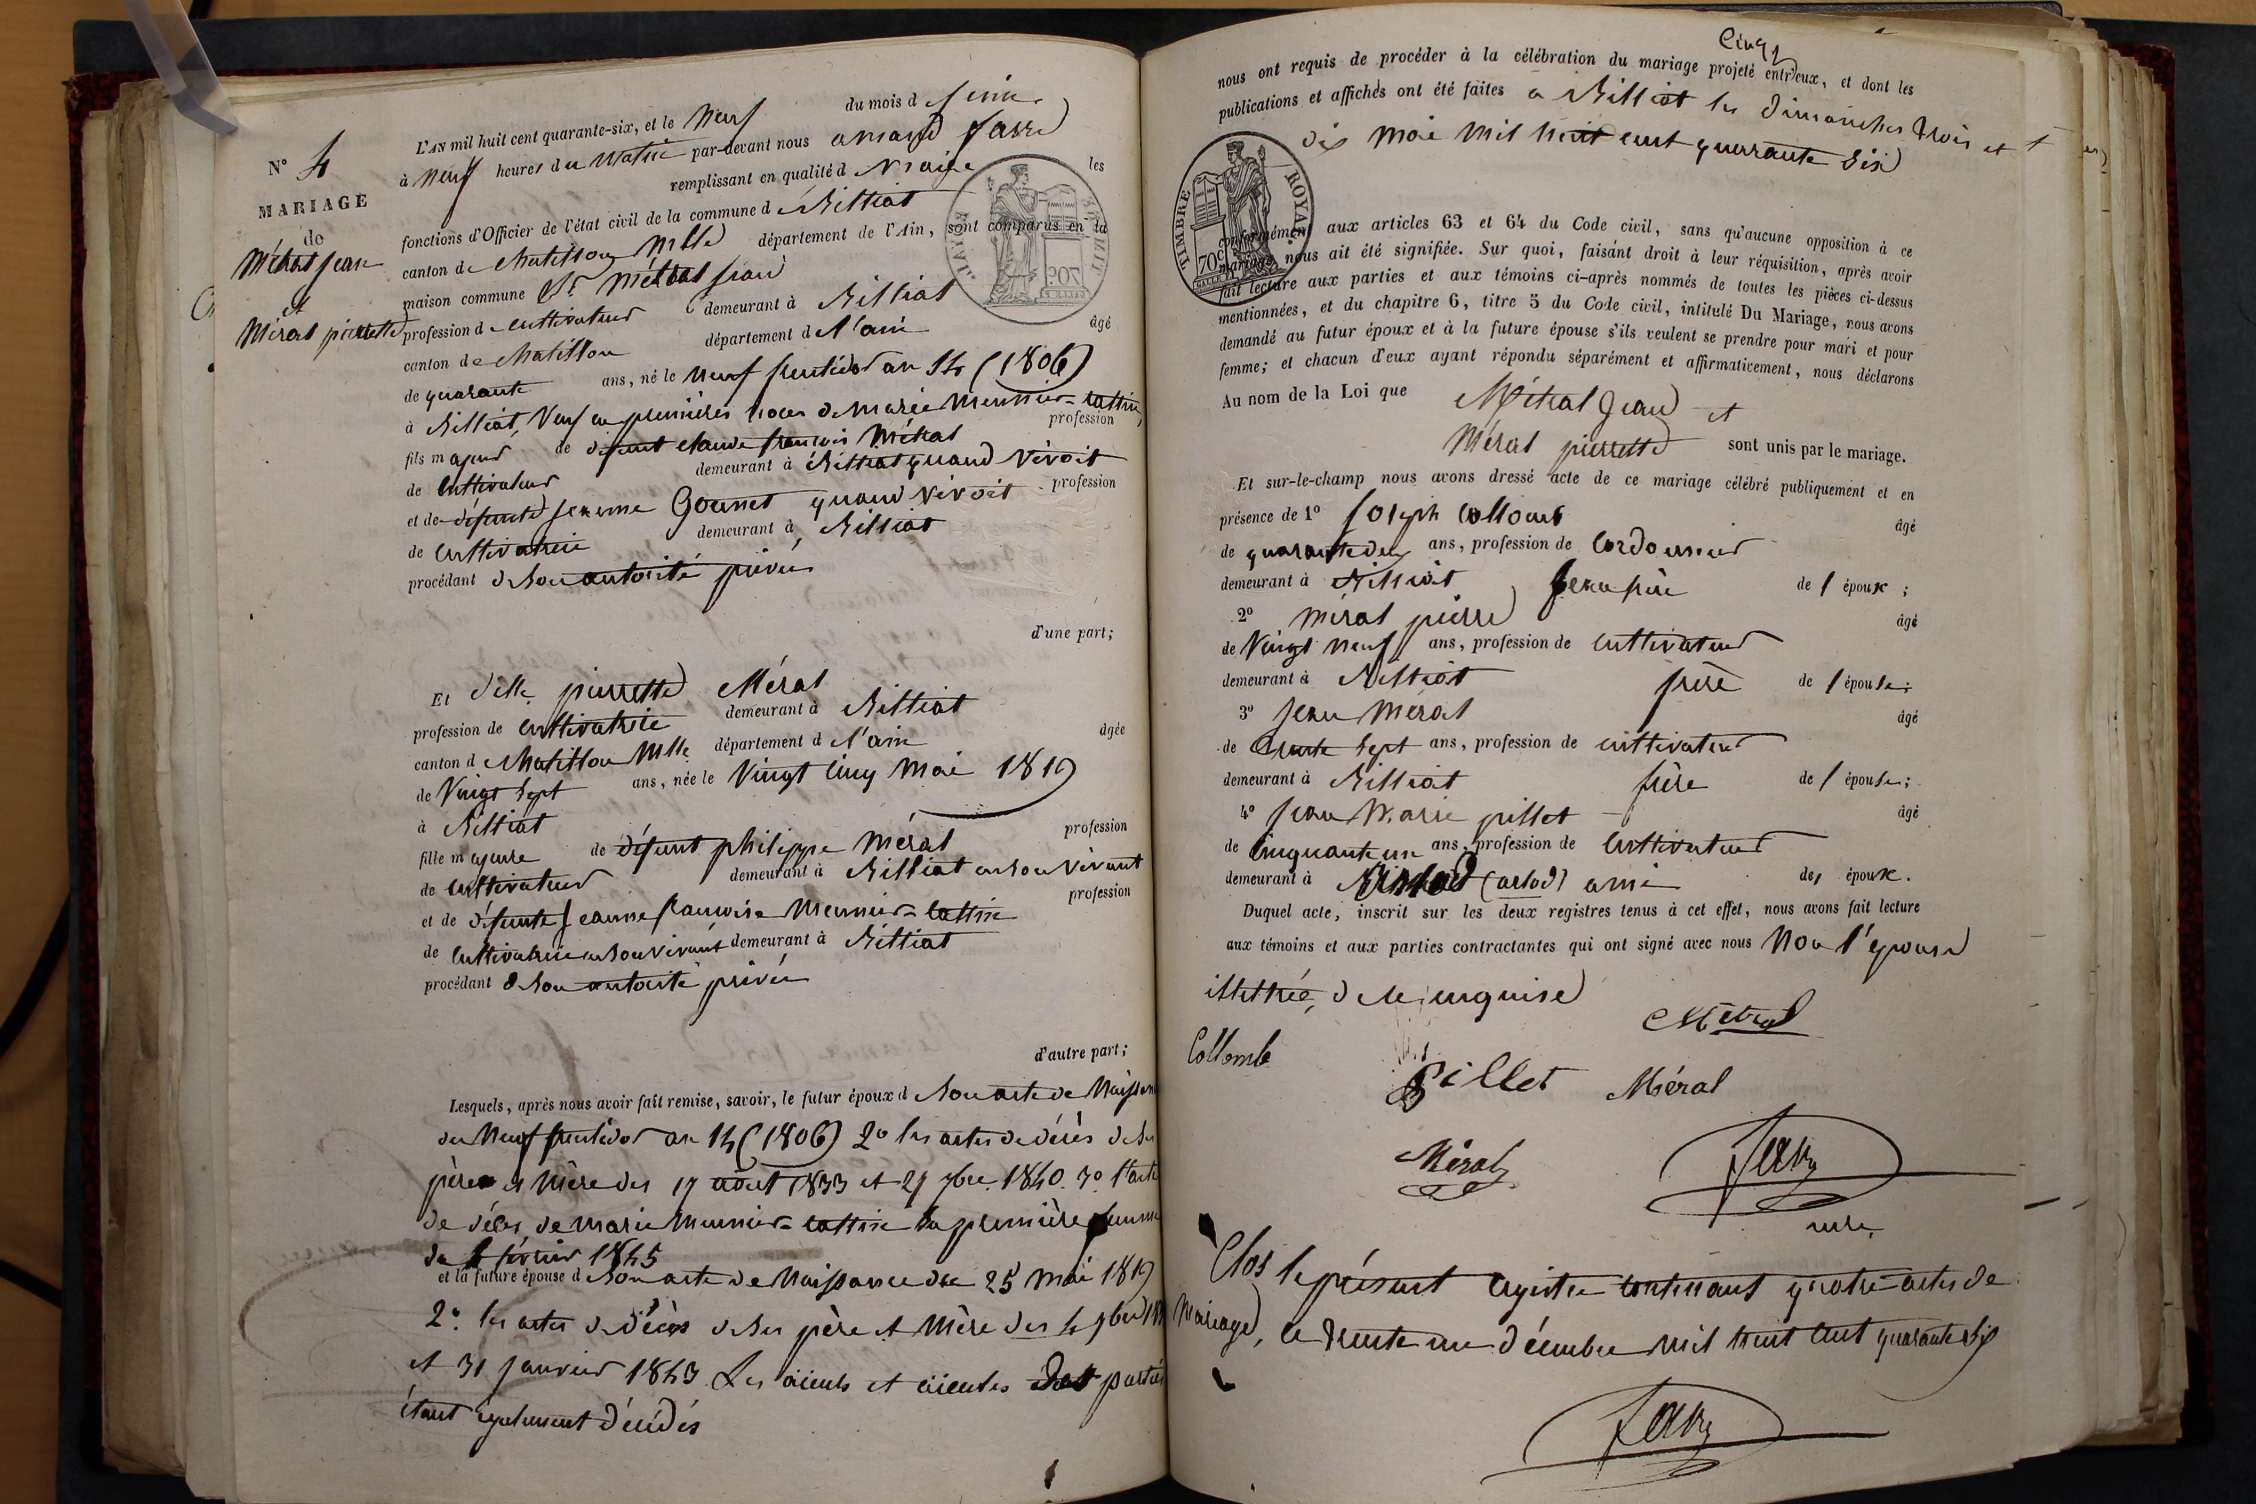 N° 4
MARIAGE
de
Métral Jean
et
Méral pierrette
L'AN mil huit cent quarante-six, et le neuf du mois d juin
à neuf heures du matin par-devant nous amand favre
remplissant en qualité d maire les
fonctions d'Officier de l'état civil de la commune d Billiat
canton de chatillon mlle département de l'Ain, sont comparus en la
maison commune Sr. Métral jean
profession d cultivateur demeurant à Billiat
canton de chatillon département d l'ain âgé
de quarante ans, né le neuf fructidor an 14 (1806)
à Billiat, Veuf en premières noces de marie meunier-lattire,
fils majeur de défunt claude françois Métral profession
de cultivateur demeurant à Billiat quand vivoit
et de défunte jeanne Gounet quand vivoit profession
de cultivatrice demeurant à Billiat
procédant de son autorité privée
d'une part;
Et delle pierrette Méral
profession de cultivatrice demeurant à Billiat
canton d chatillon mlle département d l'ain âgée
de vingt sept ans, née le vingt cinq mai 1819
à Billiat
fille majeure de défunt philippe méral profession
de cultivateur demeurant à Billiat en son vivant
et de défunte jeanne françoise meunier-lattire profession
de cultivatrice en son vivant demeurant à Billiat
procédant de son autorité privée
d'autre part;
Lesquels, après nous avoir fait remise, savoir, le futur époux d son acte de naissance
du neuf fructidor an 14 (1806) 2° les actes de décès de ses
père et mère des 17 aout 1833 et 27 9bre 1840. 3° l'acte
de décès de marie meunier-lattire sa première femme
du février 1845
et la future épouse d son acte de naissance du 25 mai 1819
2°. les actes de décès de ses père et mère des 4 9bre
et 31 janvier 1843. Les aieuls et aieules des parties
étant également décédés
Cinq
nous ont requis de procéder à la célébration du mariage projeté entr'eux, et dont les
publications et affiches ont été faites a Billiat les dimanches trois et
dix mai mil huit cent quarante six
TIMBRE ROYAL
70c
conformément aux articles 63 et 64 du Code civil, sans qu'aucune opposition à ce
mariage nous ait été signifiée. Sur quoi, faisant droit à leur réquisition, après avoir
fait lecture aux parties et aux témoins ci-après nommés de toutes les pièces ci-dessus
mentionnées, et du chapitre 6, titre 5 du Code civil, intitulé Du Mariage, nous avons
demandé au futur époux et à la future épouse s'ils veulent se prendre pour mari et pour
femme; et chacun d'eux ayant répondu séparément et affirmativement, nous déclarons
Au nom de la Loi que Métral Jean et
Méral pierrette sont unis par le mariage.
Et sur-le-champ nous avons dressé acte de ce mariage célébré publiquement et en
présence de 1° joseph Collomb âgé
de quarante deux ans, profession de cordonnier
demeurant à Billiat beau frère de l époux;
2° méral pierre âgé
de vingt neuf ans, profession de cultivateur
demeurant à Billiat frère de l épouse;
3° jean Méral âgé
de trente sept ans, profession de cultivateur
demeurant à Billiat frère de l épouse;
4° jean marie pillet âgé
de cinquante un ans, profession de cultivateur
demeurant à (arlod) ami des époux.
Duquel acte, inscrit sur les deux registres tenus à cet effet, nous avons fait lecture
aux témoins et aux parties contractantes qui ont signé avec nous non l'épouse
illettrée, de ce enquise
Métral
Collomb
Pillet Méral
Méral favre
mre
Clos le présent registre contenant quatre actes de
mariage, ce trente un décembre mil huit cent quarante six
favre